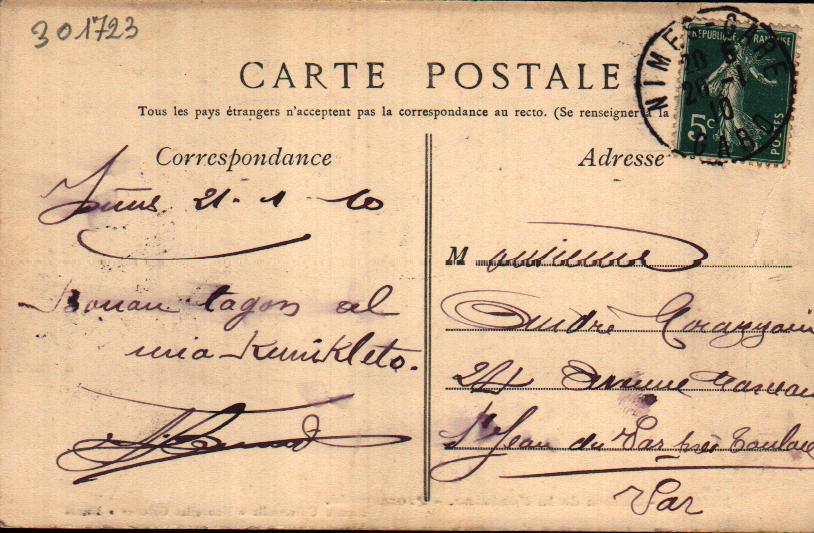 301723
CARTE POSTALE
Tous les pays étrangers n'acceptent pas la correspondance au recto. (Se renseigner à la
NIMES-GARE
20 6
20 - 1
10
GARD
RÉPUBLIQUE FRANÇAISE
5c
POSTES
Correspondance
Adresse
21 - 1 - 10
Bonan tagon al
mia Kunikleto.
Monsieur
André
24 Avenue
St Jean du Var près Toulon
Var